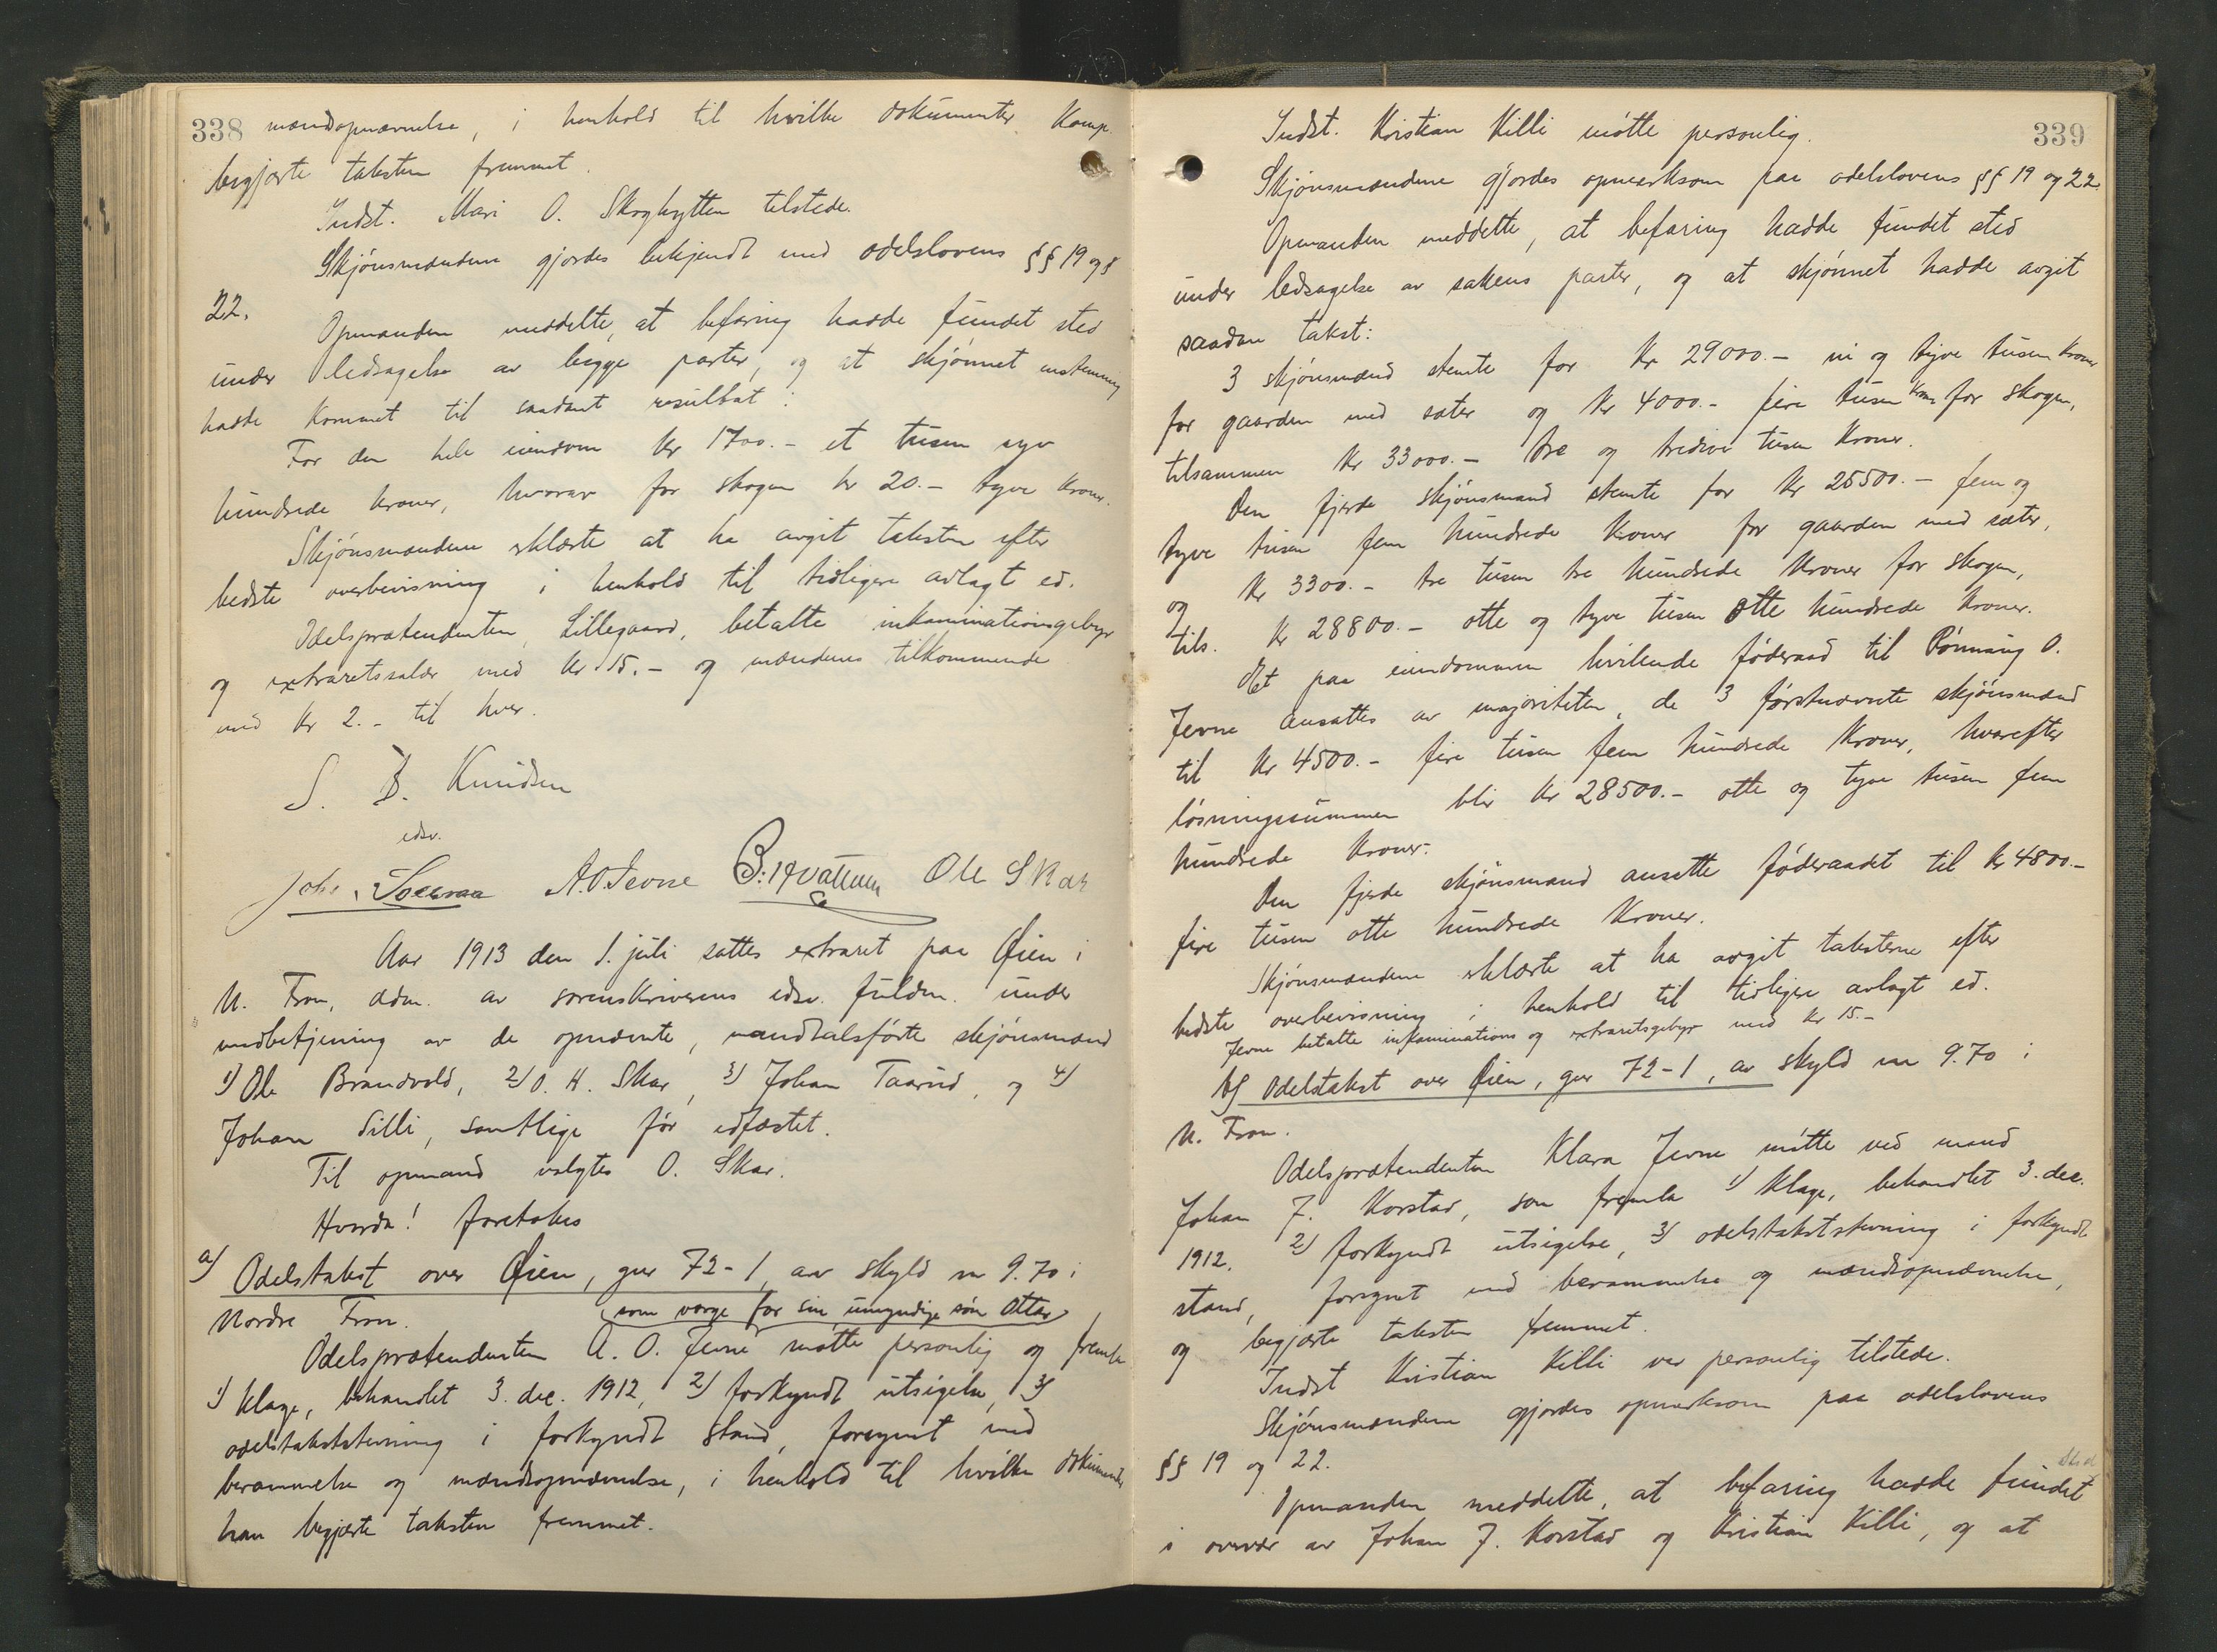 338 mændsopnævnelse, i henhold til hvilke dokumenter komp.
begjærte taksten fremmet.
Indst. Mari O. Skoghytten tilstede.
Skjönsmændene gjordes bekjendt med odelslovens §§ 19 og
22.
Opmanden meddelte, at befaring hadde fundet sted
under ledsagelse av begge parter, og at skjönnet enstemmig
hadde kommet til saadant resultat:
For den hele eiendom kr 1700.- et tusen syv
hundrede kroner, hvorav for skogen kr 20.- tyve kroner.
Skjönsmændene erklærte at ha avgit taksten efter
bedste overbevisning i henhold til tidligere avlagt ed.
Odelsprætendenten, Lillegaard, betalte inkaminationsgebyr
og extraretssalær med kr 15.- og mændenes tilkommende
med kr 2.- til hver.
S. B. Knudsen
edsv.
Joh. A. O Jevne Ole Skar
Aar 1913 den 1. juli sattes extraret paa Öien i
N. Fron, adm. av sorenskriverens edsv. fuldm. under
medbetjening av de opnævnte, mandtalsförte skjönsmænd
1) Ole Brandvold, 2) O. H. Skar, 3) Johan Taarud, og 4)
Johan Silli, samtlige för edfæstet.
Til opmand valgtes O. Skar.
Hvorda! foretokes
a) Odelstakst over Öien, gnr 72-1, av skyld m 9.70 i
Nordre Fron. (som værge for sin umyndige sön Ottar)
Odelsprætendenten A. O. Jevne mötte personlig og fremla
1) klage, behandlet 3. dec. 1912, 2) forkyndt utsigelse, 3)
odelstakststevning i forkyndt stand, forsynet med
berammelse og mændsopnævnelse, i henhold til hvilke dokumenter
han begjærte taksten fremmet.
339
Indst. Kristian Killi mötte personlig.
Skjönsmændene gjordes opmerksom paa odelslovens §§ 19 og 22.
Opmanden meddelte, at befaring hadde fundet sted
under ledsagelse av sakens parter, og at skjönnet hadde avgit
saadan takst:
3 skjönsmænd stemte for kr 29000.- ni og tyve tusen kroner
for gaarden med sæter og kr 4000.- fire tusen kroner for skogen,
tilsammen kr 33000.- tre og tredive tusen kroner.
Den fjerde skjönsmand stemte for kr 25500.- fem og
tyve tusen fem hundrede kroner for gaarden med sæter,
og kr 3300.- tre tusen tre hundrede kroner for skogen,
tils. kr 28800.- otte og tyve tusen otte hundrede kroner.
Det paa eiendommen hvilende föderaad til Rönnaug O.
Jevne ansattes av majoriteten, de 3 förstnævnte skjönsmænd
til kr 4500.- fire tusen fem hundrede kroner, hvorefter
lösningssummen blir kr 28500.- otte og tyve tusen fem
hundrede kroner.
Den fjerde skjönsmand ansatte föderaadet til kr 4800.-
fire tusen otte hundrede kroner.
Skjönsmændene erklærte at ha avgit taksterne efter
bedste overbevisning i henhold til tidligere avlagt ed.
Jevne betalte inkaminations og extraretsgebyr med kr 15.-
b) Odelstakst over Öien, gnr 72-1, av skyld m 9.70 i
N. Fron.
Odelsprætendenten Klara Jevne mötte ved mand
Johan J. Korstad, som fremla 1) klage, behandlet 3. dec.
1912, 2) forkyndt utsigelse, 3) odelstakststevning i forkyndt
stand, forsynet med berammelse og mændsopnævnelse,
og begjærte taksten fremmet.
Indst Kristian Killi var personlig tilstede.
Skjönsmændene gjordes opmerksom paa odelslovens
§§ 19 og 22.
Opmanden meddelte, at befaring hadde fundet sted
i overvær av Johan J. Korstad og Kristian Killi, og at